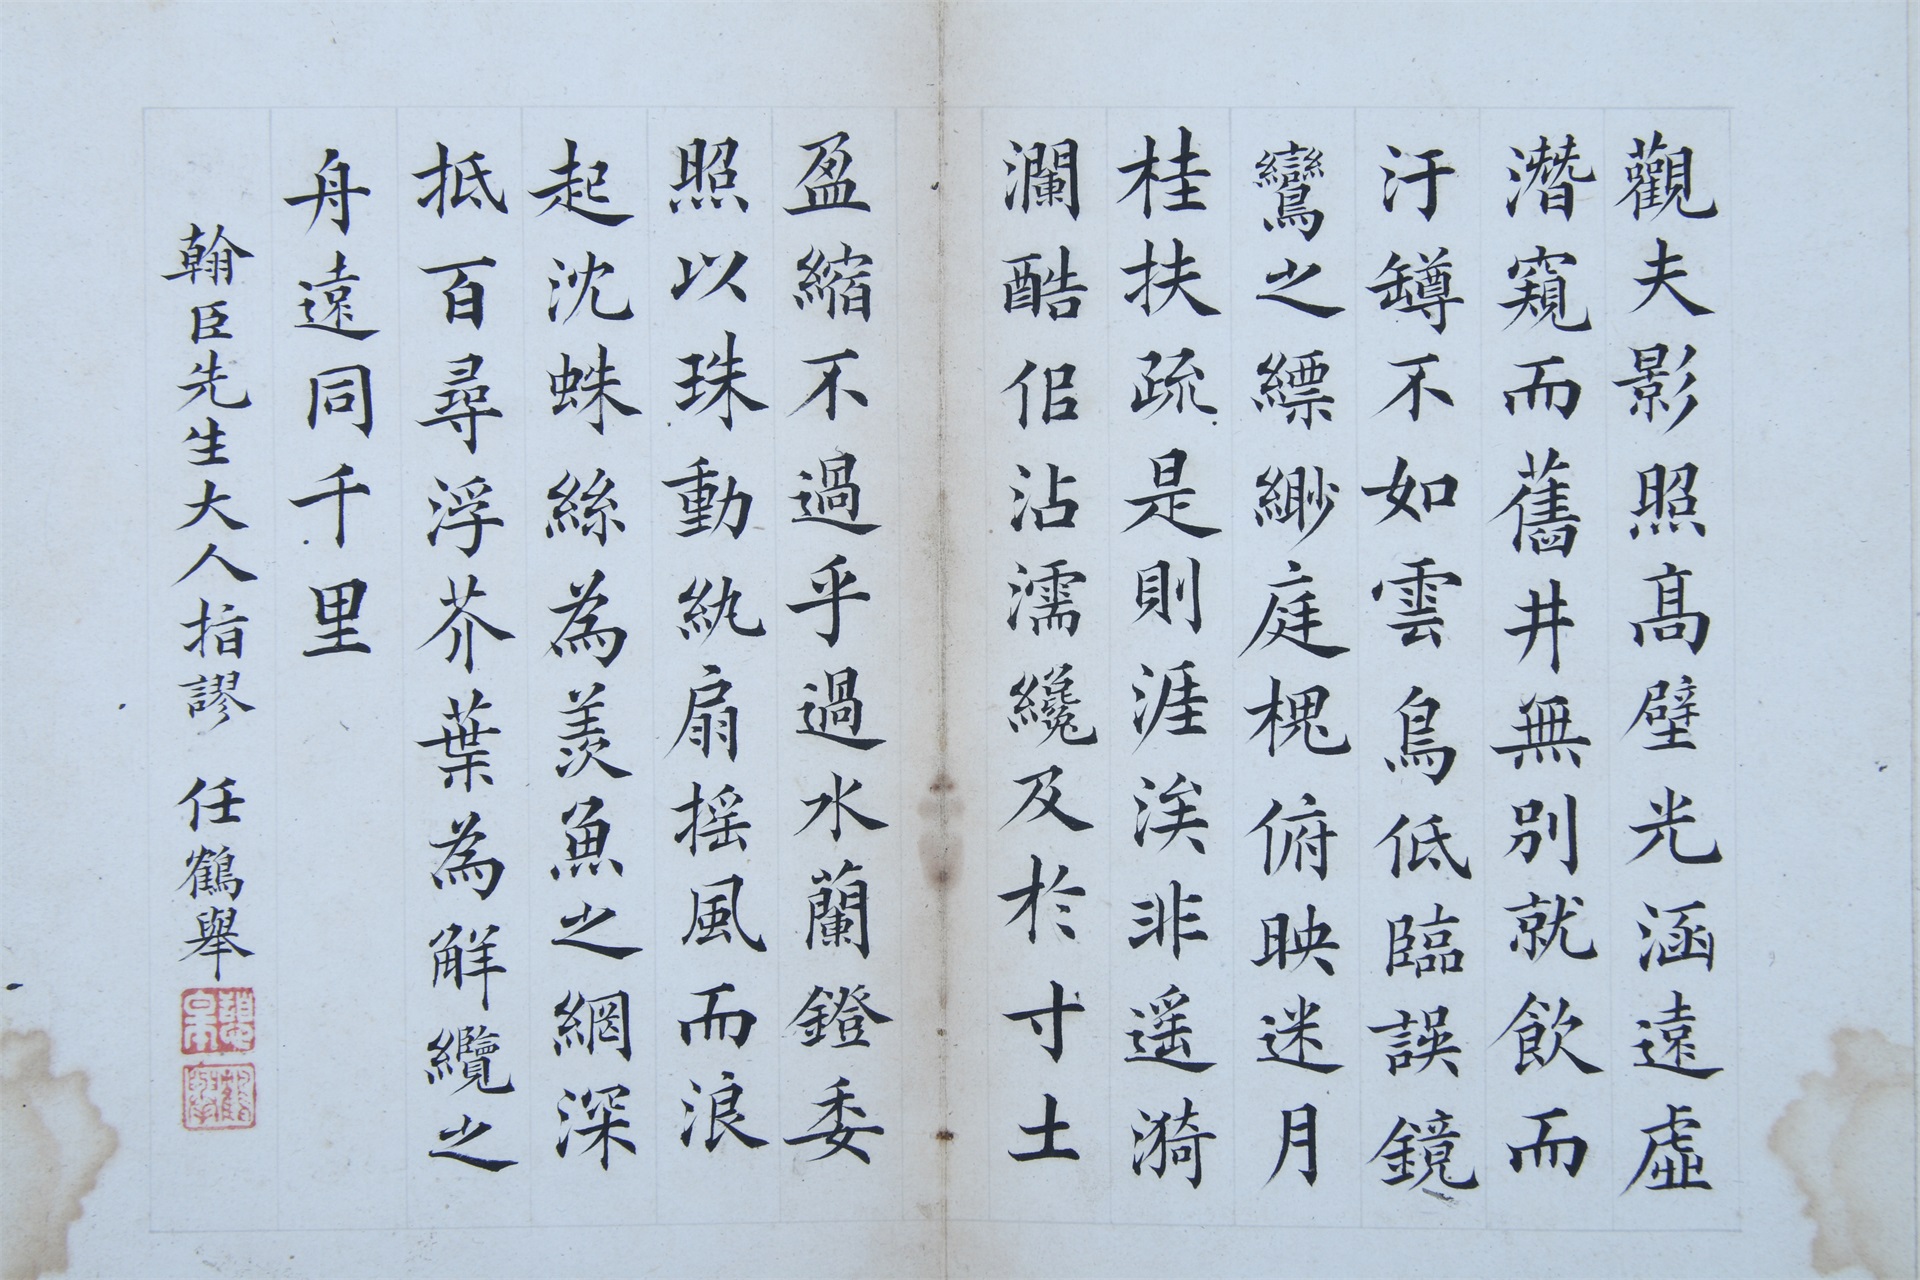 觀夫影照高壁光涵遠虛
潛窺而舊井無別就飲而
汙罇不如雲鳥低臨誤鏡
鸞之縹緲庭槐俯映迷月
桂扶疏是則涯涘非遥漪
瀾酷佀沾濡纔及於寸土
盈縮不過乎過水蘭鐙委
照以珠動紈扇摇風而浪
起沈蛛絲為羡魚之網深
抵百尋浮芥葉為解纜之
舟遠同千里
翰臣先生大人指謬 任鶴舉